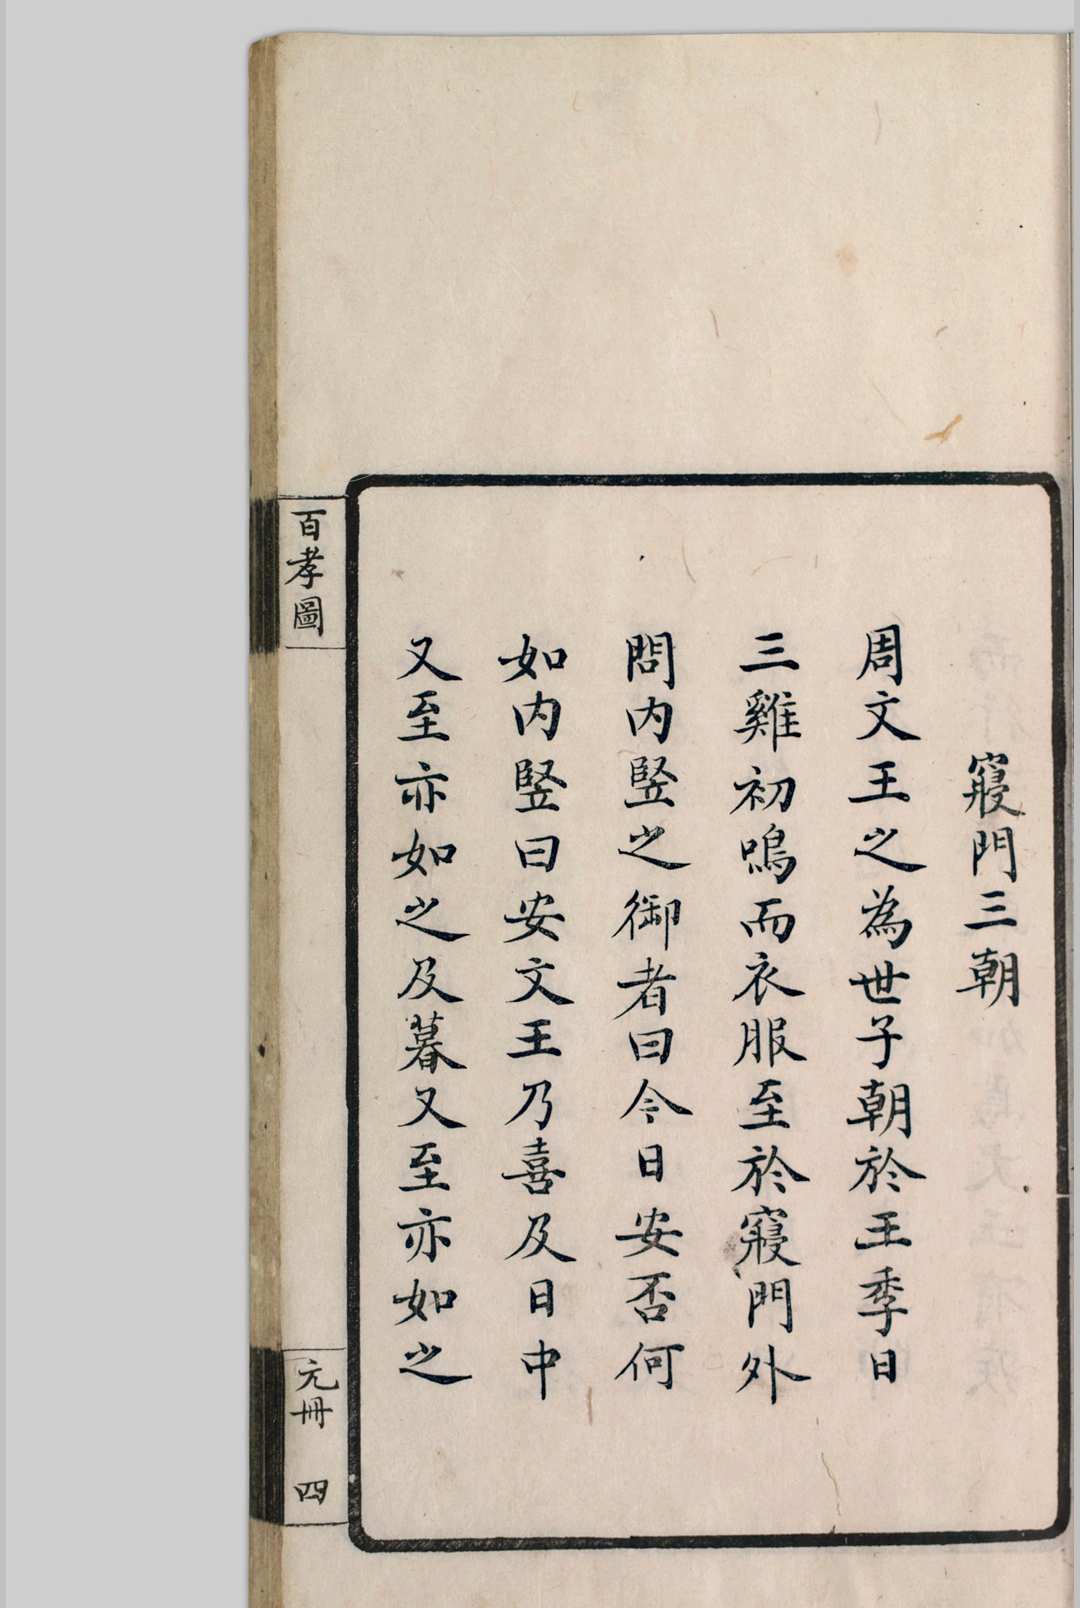 寢門三朝
周文王之為世子朝於王季日
三雞初鳴而衣服至於寢門外
問內豎之御者曰今日安否何
如內豎曰安文王乃喜及日中
又至亦如之及暮又至亦如之
百孝圖
元冊 四